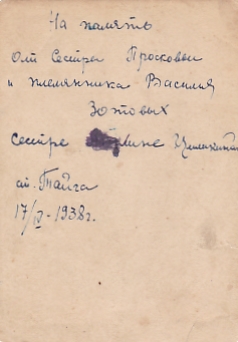 На память
От Сестры Просковьи
и племянника Василия
Зотовых
сестре
ст. Тайга
17/IX-1938г.